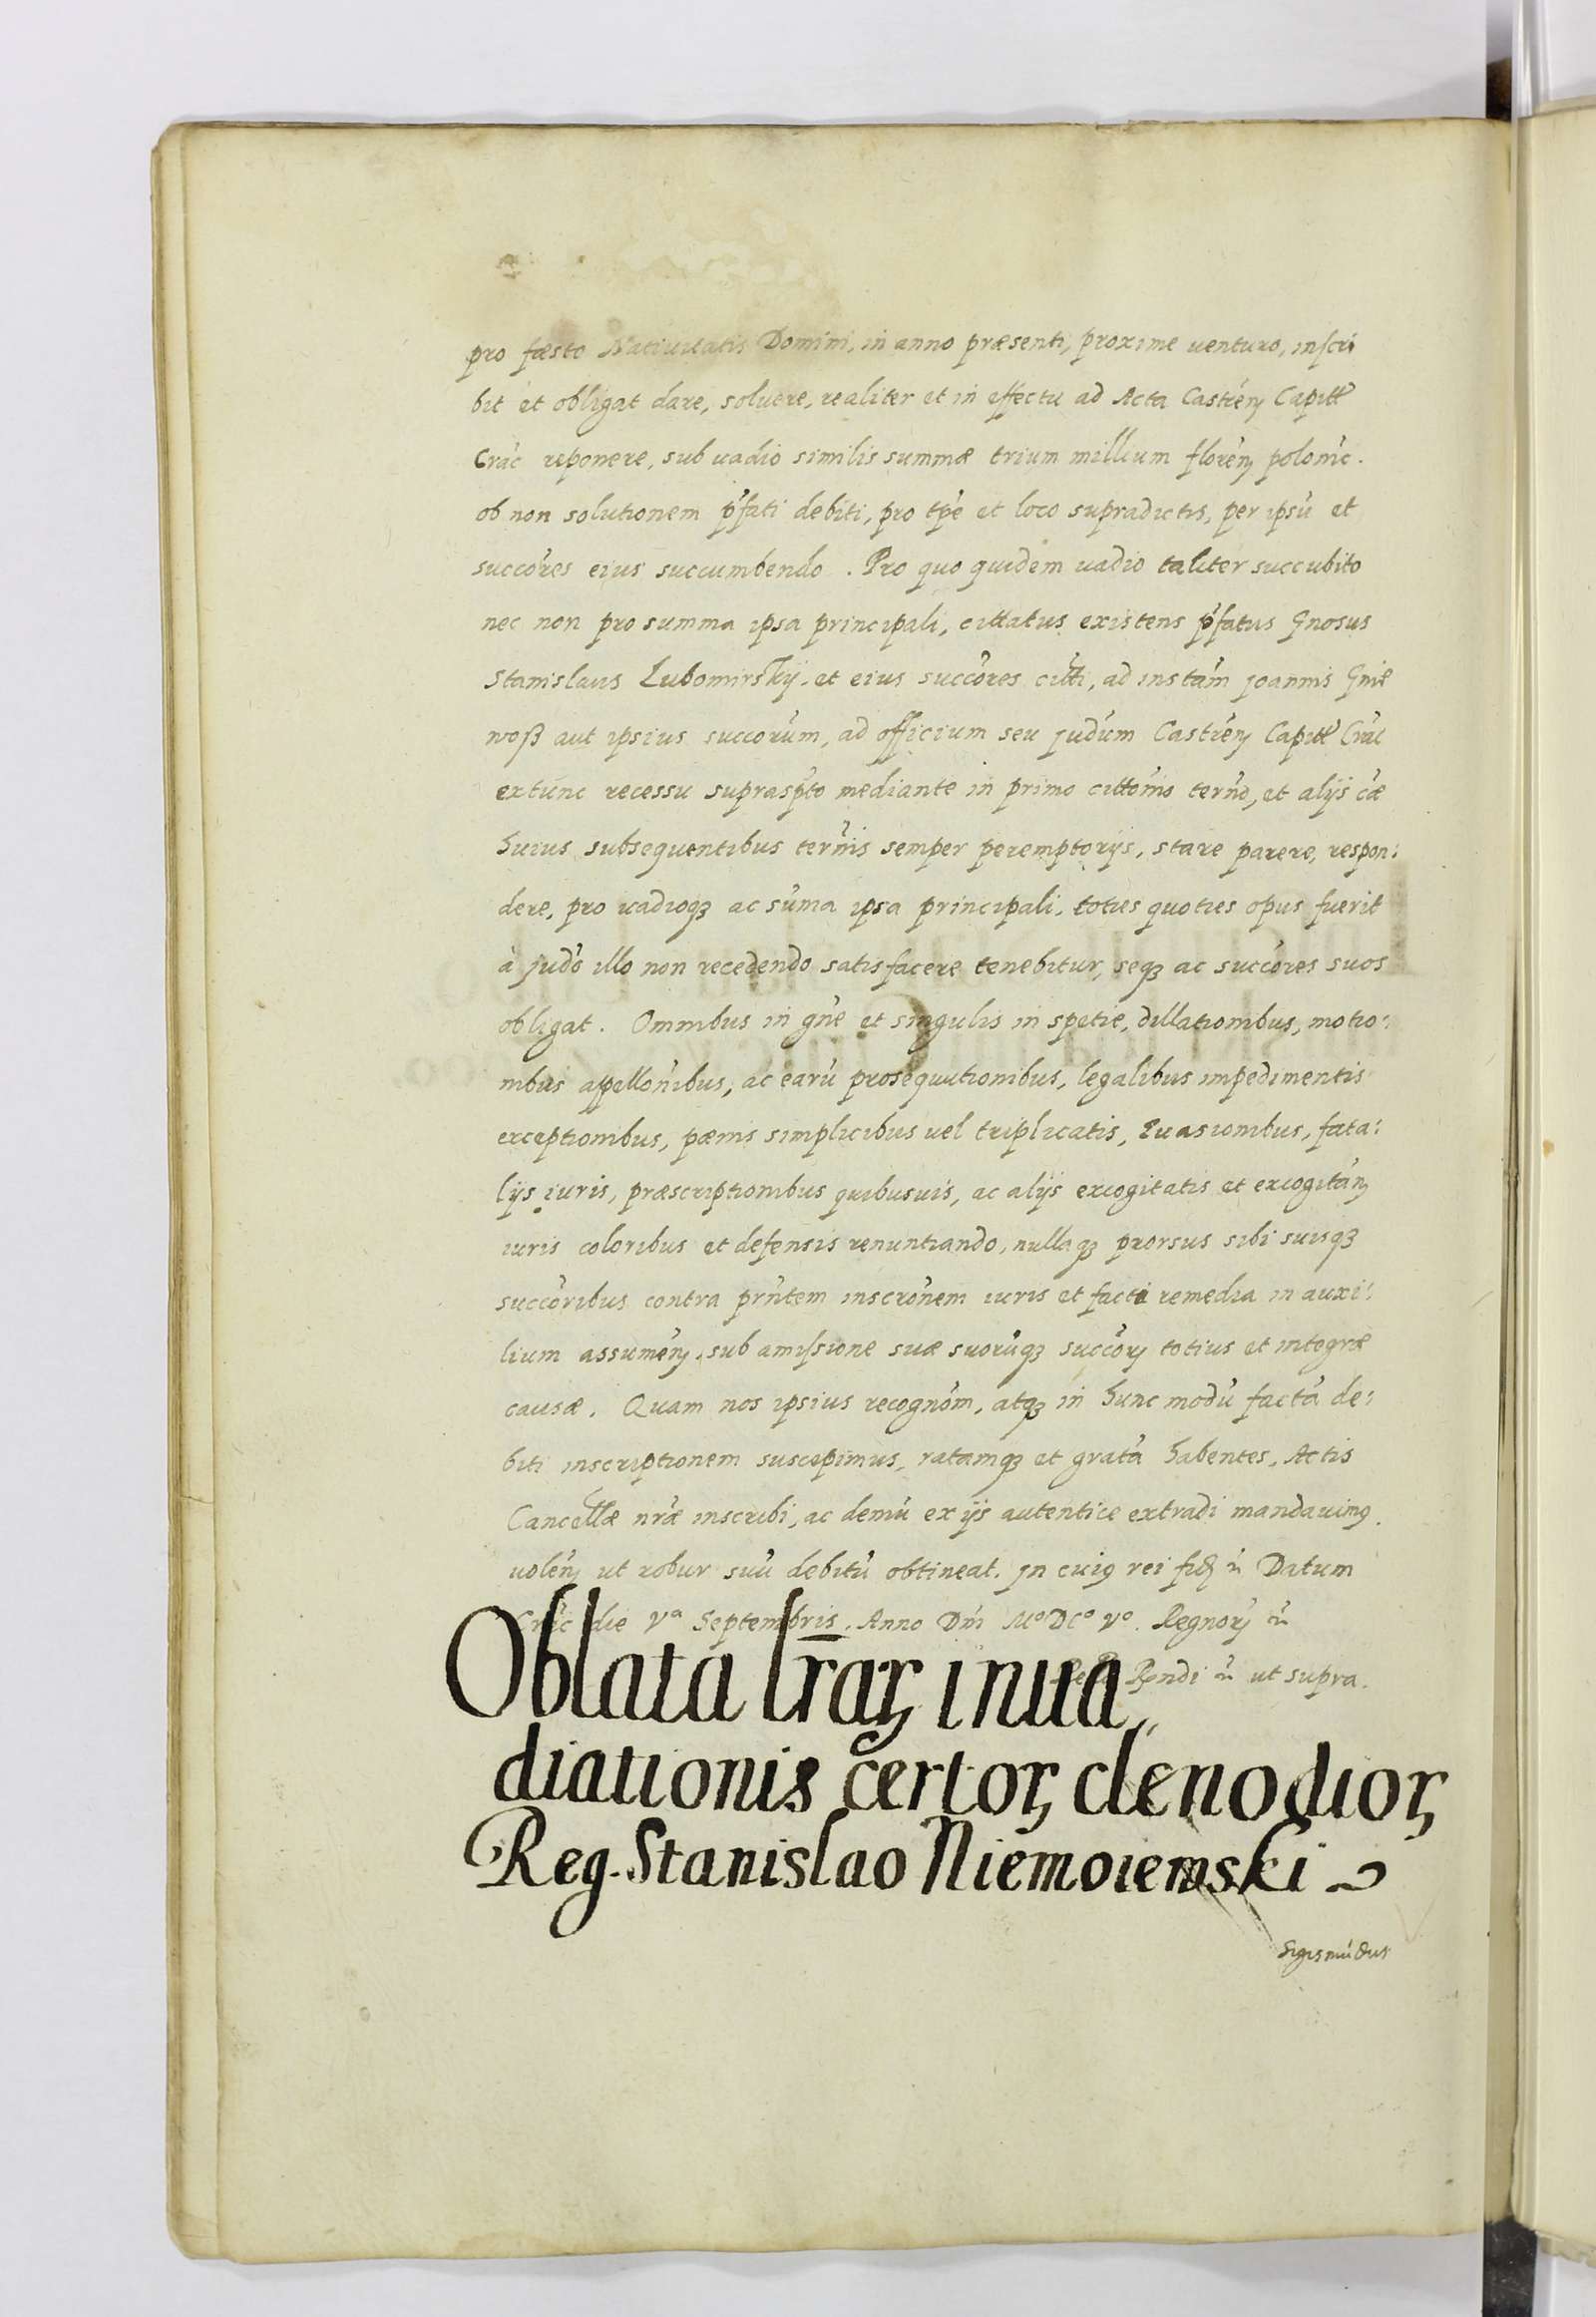 pro fæsto Natiuitatis Domini, in anno præsenti, proxime uenturo, inscri
bit et obligat dare, soluere, realiter et in effectu ad Acta Castrēn Capitł
Crác reponere, sub uadio similis summæ trium millium florēn polonic.
ob non solutionem p̃fati debiti, pro tp̃e et loco supradictis, per ipsū et
succōres eius succumbendo. Pro quo quidem uadio taliter succubito
nec non pro summa ipsa principali, cittatus existens p̃fatus Gnosus
Stanislaus Lubomirskij et eius succōres citti, ad instām Joannis Gnie
woß aut ipsius succorūm, ad officium seu judūm Castrēn Capitł Crác
extunc recessu suprasp̃to mediante in primo cittōnis termō, et alijs cæ
huius subsequentibus termīs semper peremptorijs, stare parere, respon:
dere, pro uadioqȝ ac sūma ipsa principali, toties quoties opus fuerit
à judō illo non recedendo satisfacere tenebitur, seqȝ ac succōres suos
obligat. Omnibus in gñe et singulis in spetie, dillationibus, motio:
nibus appellōnibus, ac earū prosequutionibus, legalibus impedimentis
exceptionibus, pænis simplicibus uel triplicatis, Euasionibus, fata:
lijs iuris, præscriptionibus quibusuis, ac alijs excogitatis et excogitān
iuris coloribus et defensis renuntiando, nullaqȝ prorsus sibi suisqȝ
succōribus contra prñtem inscrōnem iuris et facti remedia in auxi:
lium assumēn, sub amissione suæ suorūqȝ succōrꝫ totius et integræ
causæ. Quam nos ipsius recognōm, atqȝ in hunc modū factā de:
biti inscriptionem suscepimus, ratamqȝ et gratā habentes, Actis
Cancellæ nrǣ inscribi, ac demū ex ijs autentice extradi mandauimꝰ
uolēn ut robur suū debitū obtineat. In cuiꝰ rei fid ꝛc Datum
Crác die Vª Septembris. Anno Dni Mº DCº Vº. Regnorꝫ ꝛc
Rndi ꝛc ut supra.
Oblata lr̄arꝫ inua„
diationis certorꝫ clenodiorꝫ
Reg. Stanislao Niemoiewski
Sigismūdus